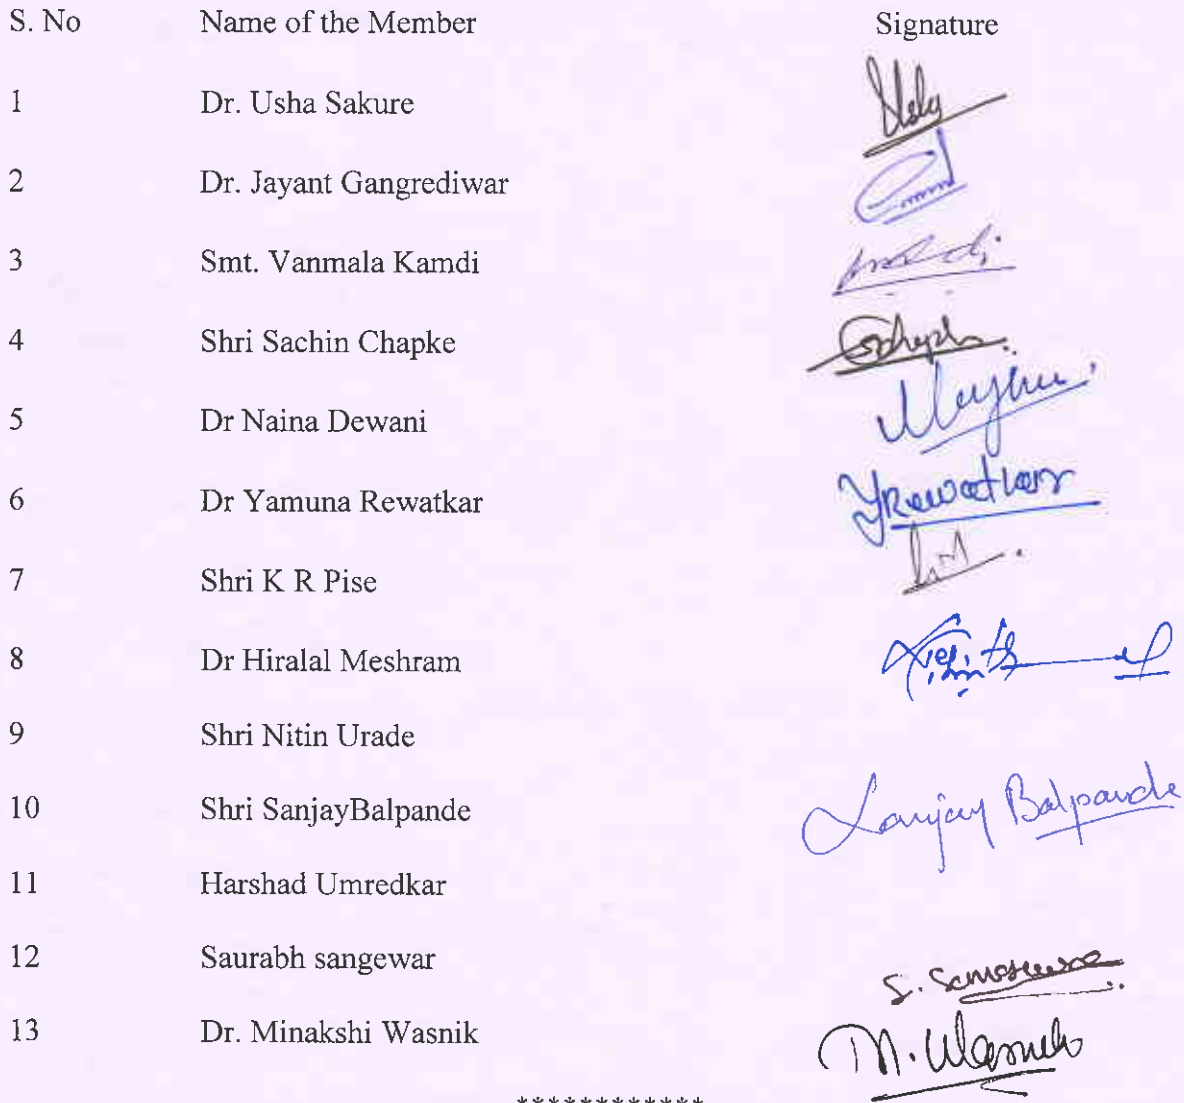 S. No Name of the Member Signature
1 Dr. Usha Sakure
2 Dr. Jayant Gangrediwar
3 Smt. Vanmala Kamdi
4 Shri Sachin Chapke
5 Dr Naina Dewani
6 Dr Yamuna Rewatkar YRewatkar
7 Shri K R Pise
8 Dr Hiralal Meshram
9 Shri Nitin Urade
10 Shri SanjayBalpande Sanjay Balpande
11 Harshad Umredkar
12 Saurabh sangewar
13 Dr. Minakshi Wasnik M. Wasnik
************